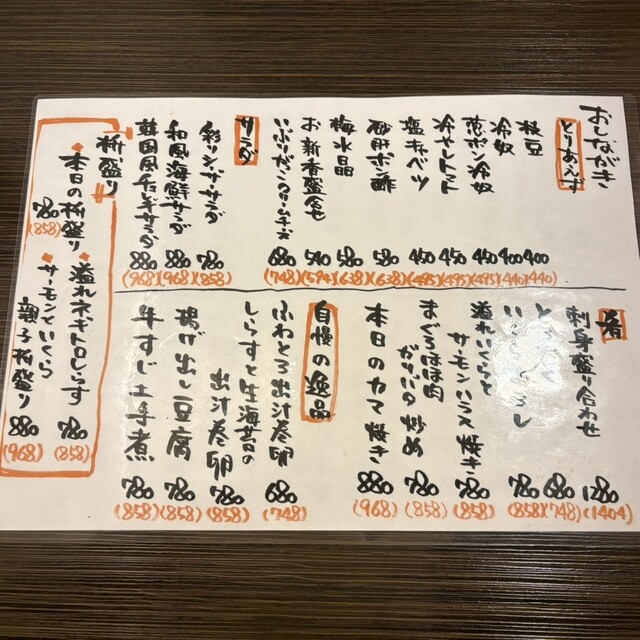 おしながき
とりあえず
枝豆 400 (440)
冷奴 400 (440)
葱ポン冷奴 450 (495)
冷やしトマト 450 (495)
塩キャベツ 450 (495)
砂肝ポン酢 580 (638)
梅水晶 580 (638)
お新香盛合せ 540 (594)
いぶりがっこクリームチーズ 680 (748)
サラダ
彩りシーザーサラダ 780 (858)
和風海鮮サラダ 880 (968)
韓国風チョレギサラダ 880 (968)
肴
刺身盛り合わせ 1280 (1404)
680 (748)
780 (858)
溢れいくらと
サーモンハラス焼き 780 (858)
まぐろほほ肉
ガーリック炒め 780 (858)
本日のカマ焼き 880 (968)
自慢の逸品
ふわとろ出汁巻卵 680 (748)
しらすと生海苔の
出汁巻卵 780 (858)
揚げ出し豆腐 780 (858)
牛すじ土手煮 780 (858)
桝盛り
本日の桝盛り 780 (858)
溢れネギトロしらす 780 (858)
サーモンといくら
親子桝盛り 880 (968)